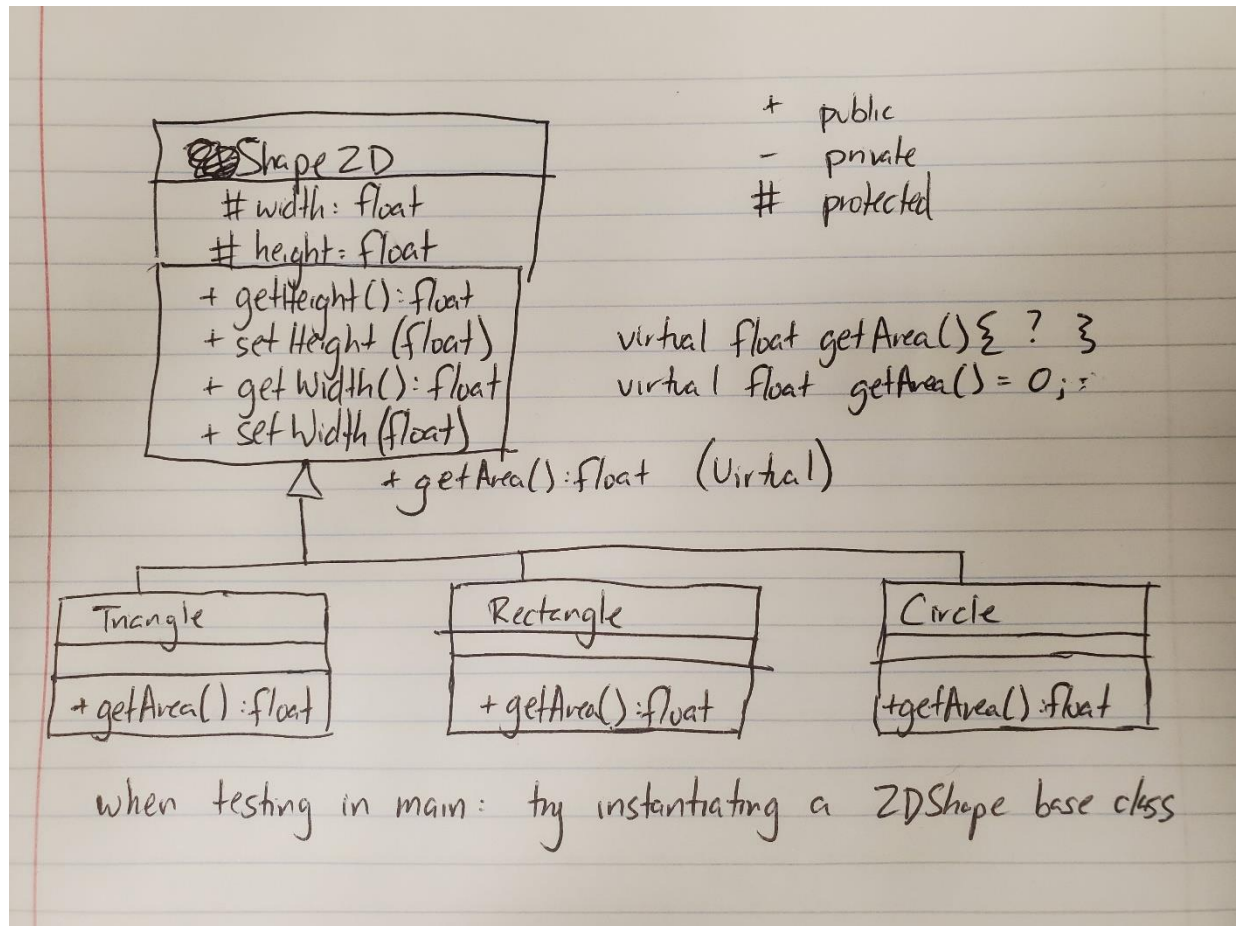 Shape2D
# width: float
# height: float
+ getHeight(): float
+ setHeight (float)
+ getWidth(): float
+ setWidth (float)
+ getArea(): float (Virtual)
+ public
- private
# protected
virtual float getArea() { ? }
virtual float getArea() = 0;
Triangle
+ getArea(): float
Rectangle
+ getArea(): float
Circle
+getArea(): float
when testing in main: try instantiating a 2DShape base class